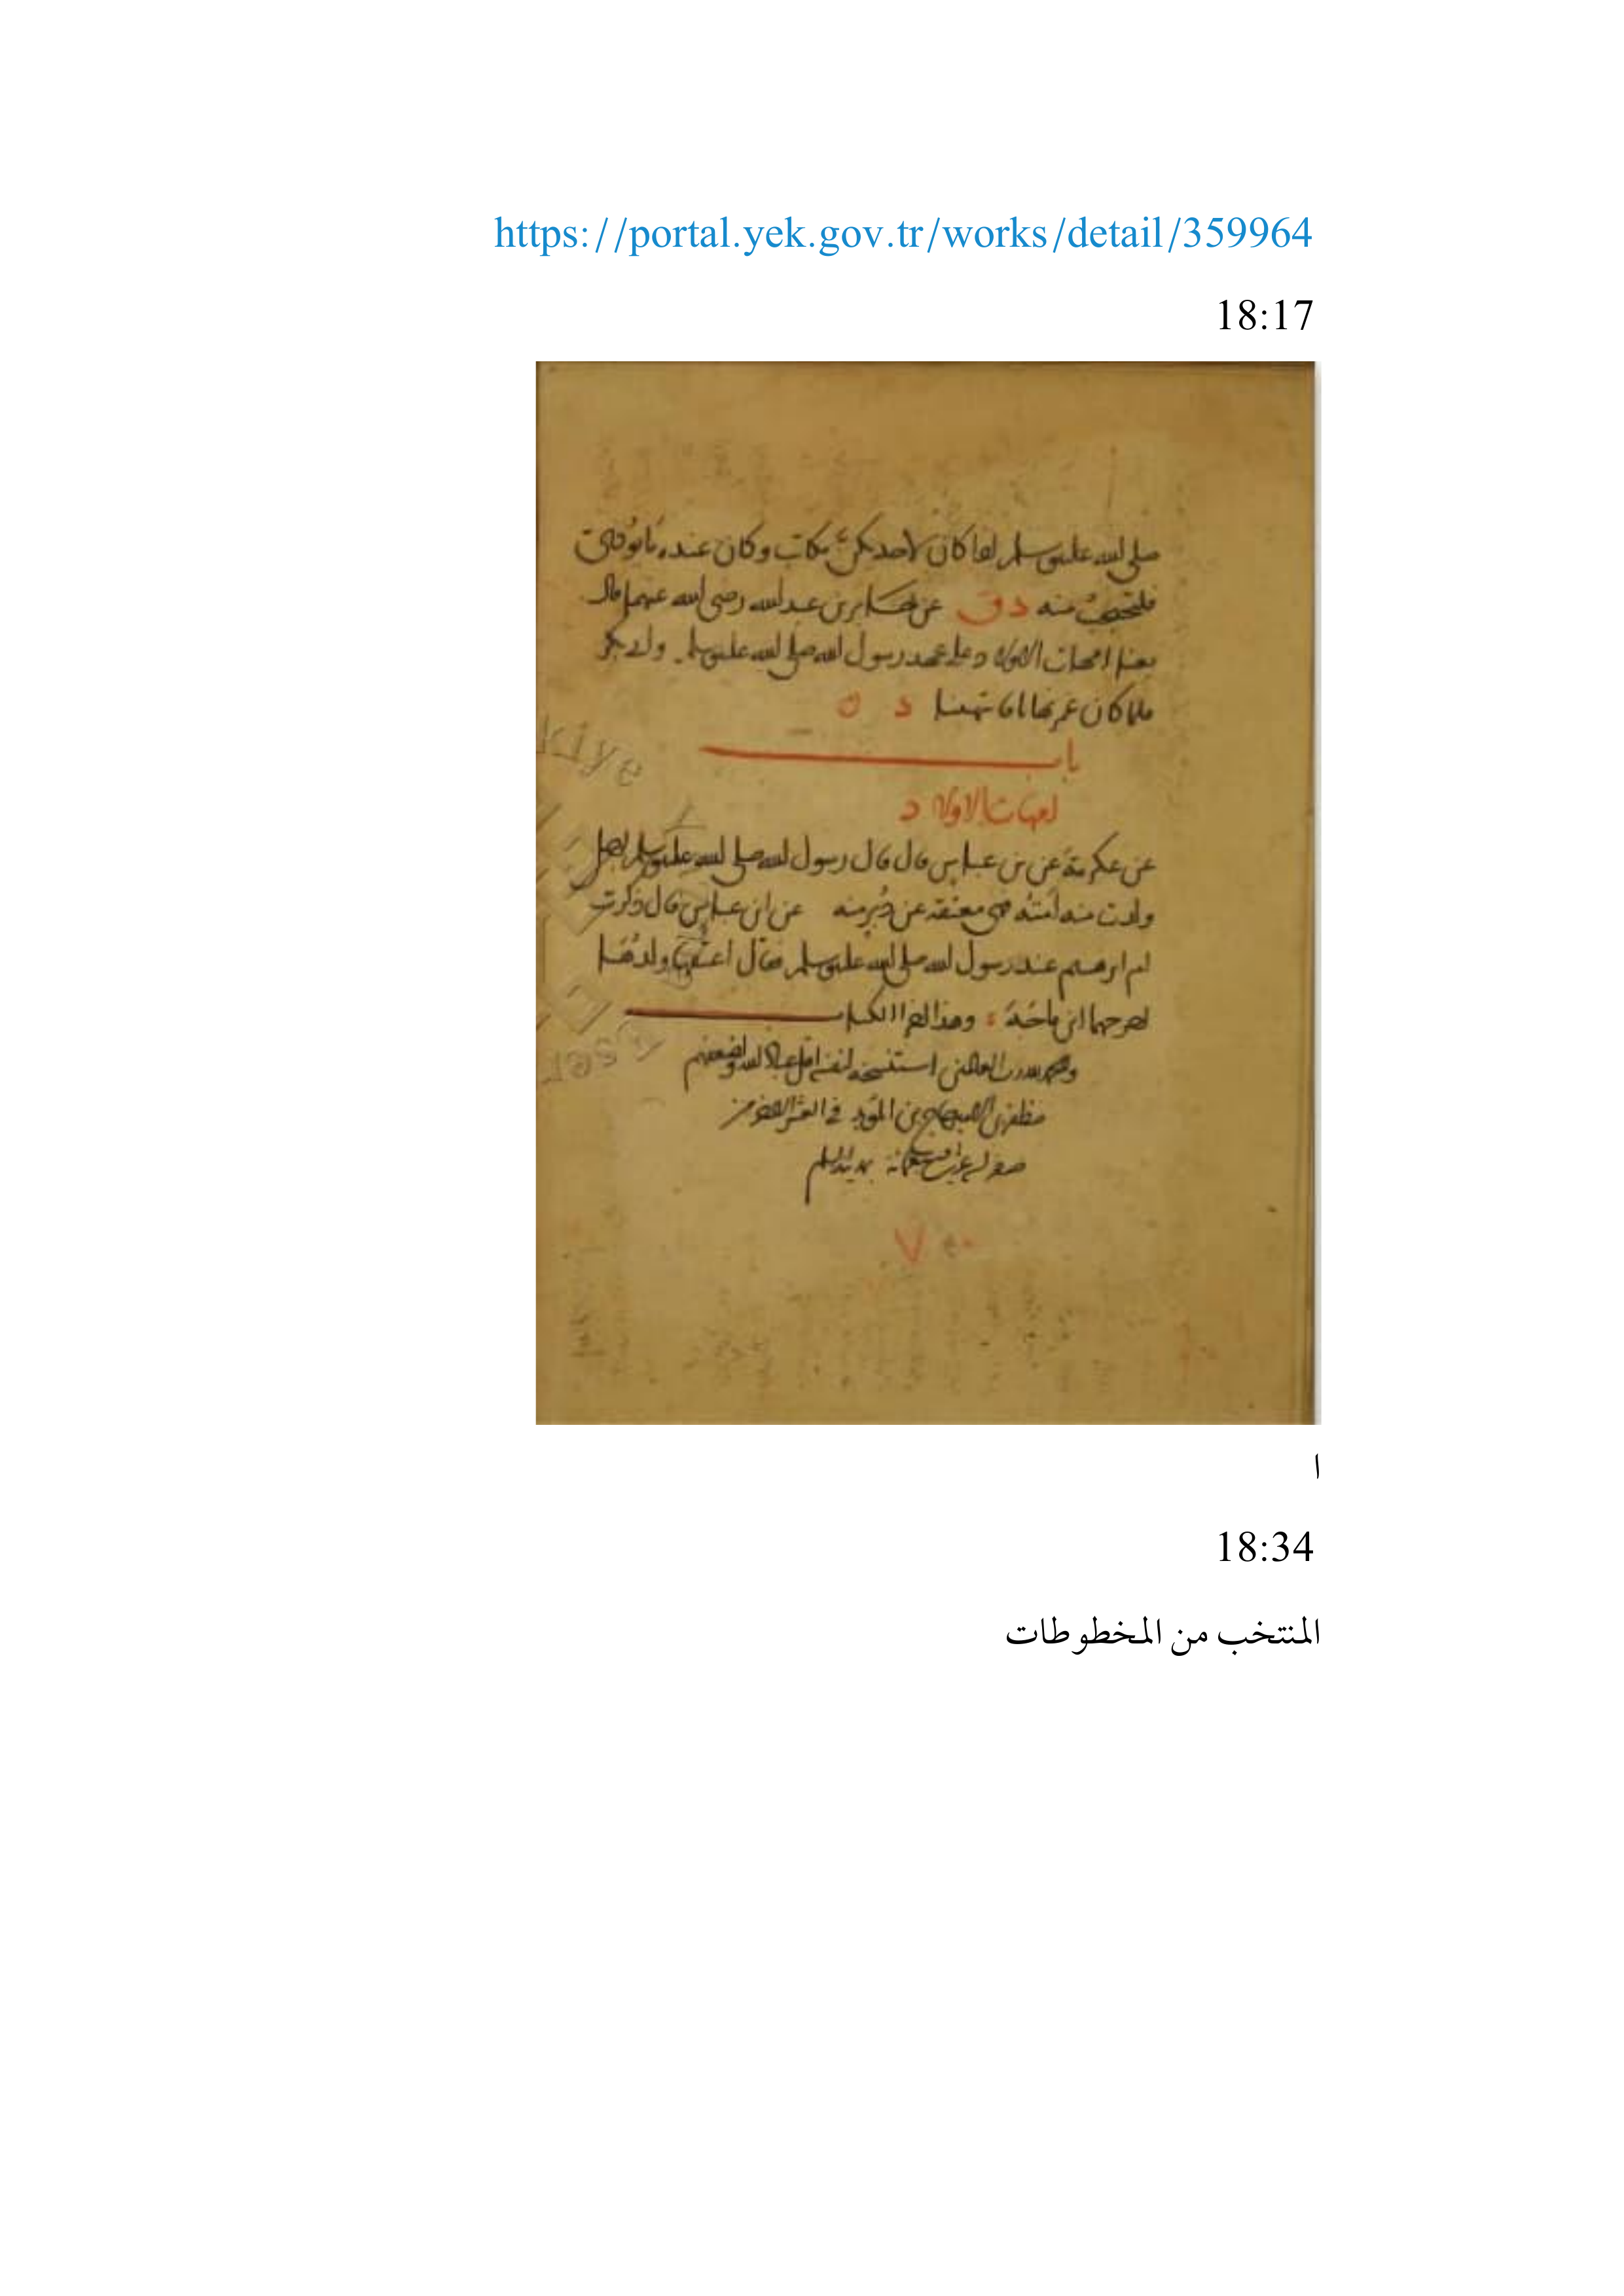 https://portal.yek.gov.tr/works/detail/359964
18:17
صلى الله عليه وسلم اذا كان لاحديكن مكاتب وكان عنده ما يؤدي
فلتحتجب منه د ق عن جابر بن عبد الله رضي الله عنهما قال
بعنا امهات الاولاد على عهد رسول الله صلى الله عليه وسلم وابي بكر
فلما كان عمر نهانا فانتهينا د ن
باب
امهات الاولاد
عن عكرمة عن بن عباس قال قال رسول الله صلى الله عليه وسلم ايما رجل
ولدت منه امته فهي معتقة عن دبر منه عن ابن عباس قال ذكرت
ام ابرهيم عند رسول الله صلى الله عليه وسلم فقال اعتقها ولدها
اخرجهما ابن ماجة وهذا اخر الكتاب
والحمد لله رب العالمين استنسخه لنفسه اقل عباد الله واضعفهم
مظفر بن بن المؤيد في العشر من
صفر
ا
18:34
المنتخب من المخطوطات